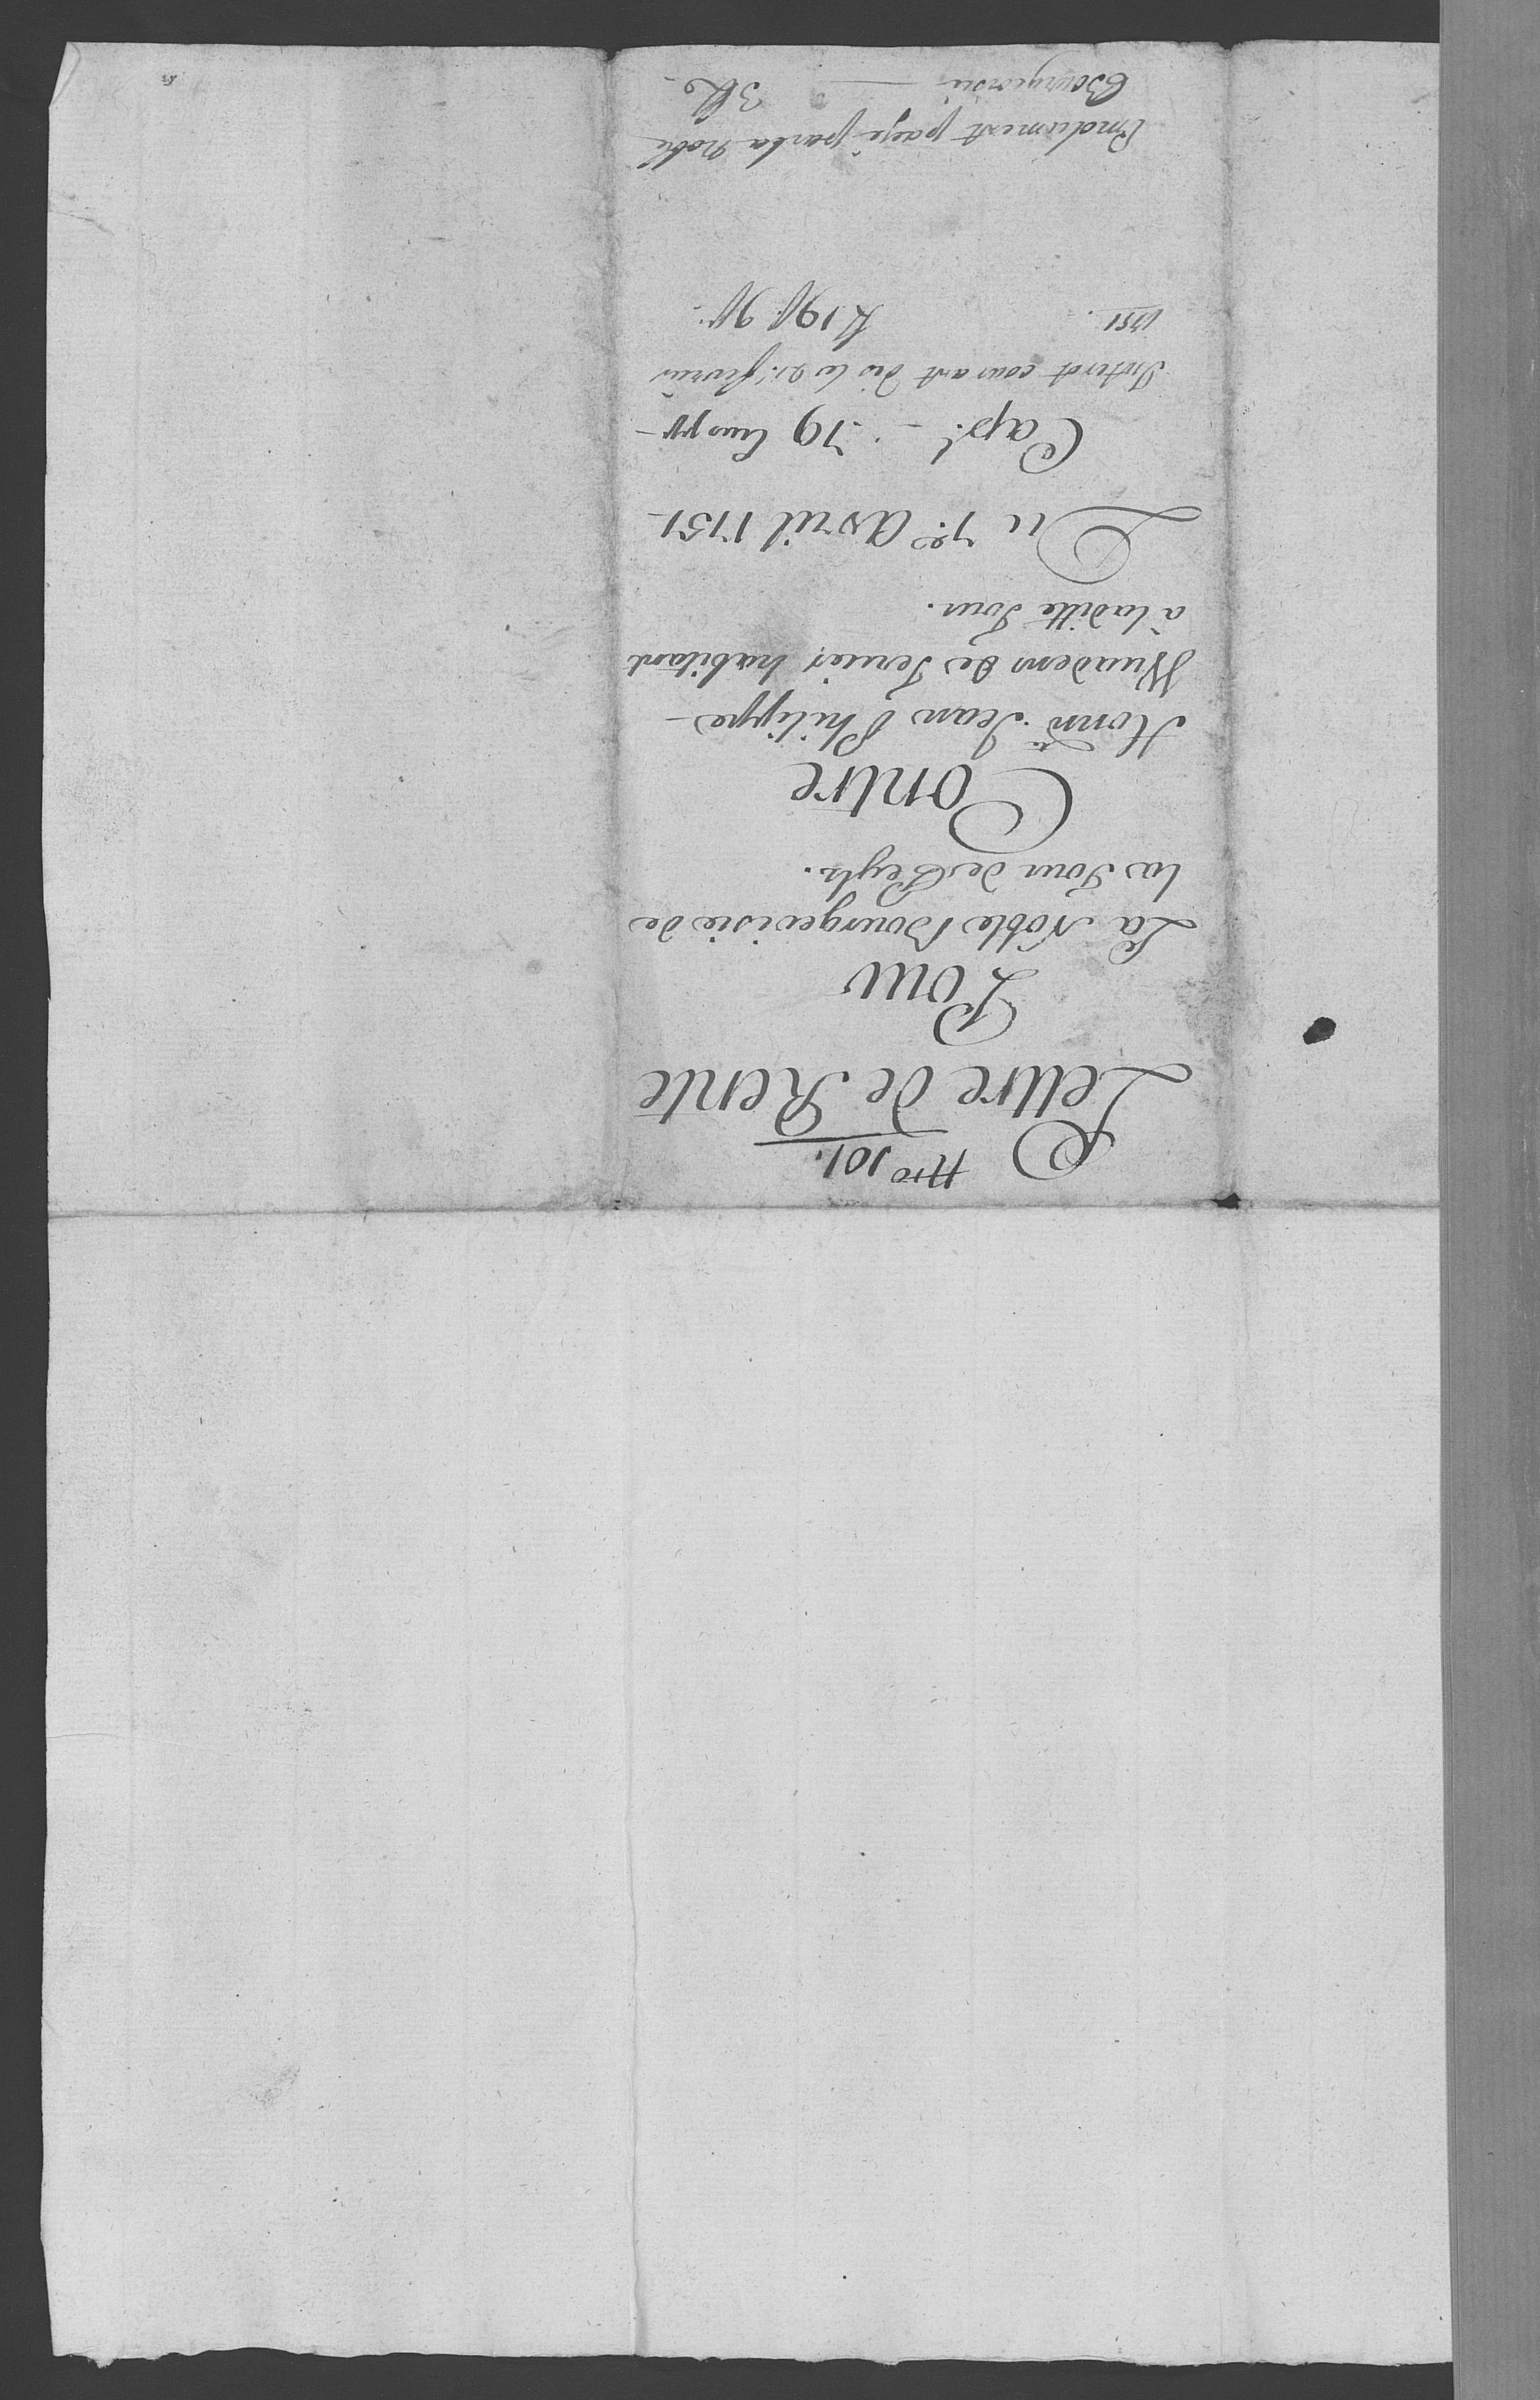 Nro 101.
Lettre de Rente
Pour
La Noble Bourgeoisie de
la Tour de Peylz.
Contre
Honn. Jean Philippe
de Ternier habitant
à laditte Tour.
Du 7e. Avril 1751
Cap.l - 79
Interet courant dès le 21. fevrier
1751.
Emolument payé par la Noble
Bourgeoisie